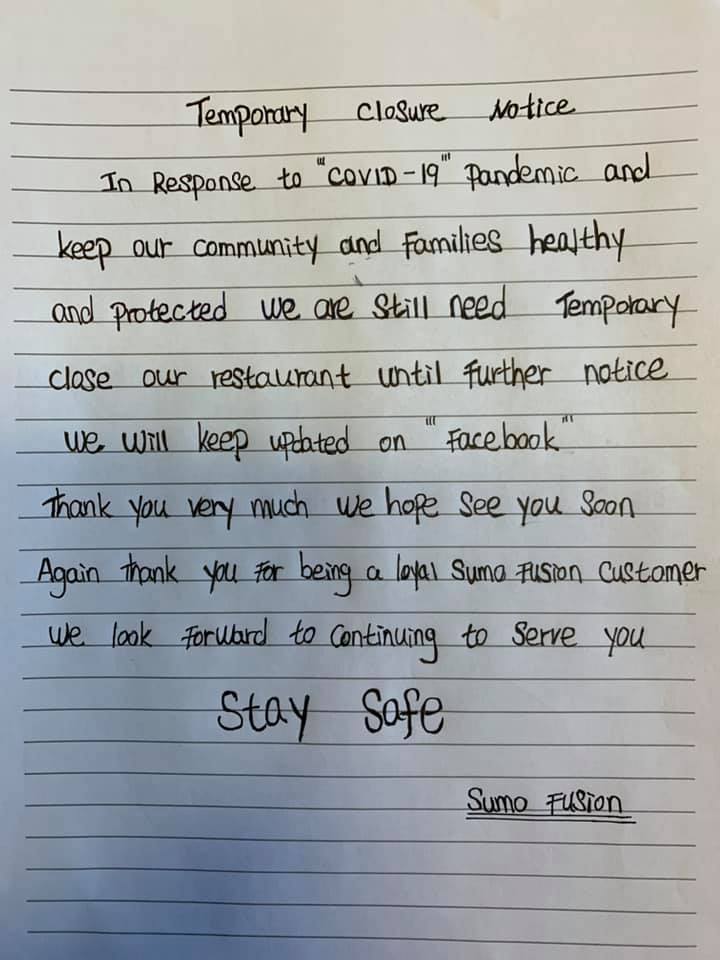 Temporary Closure Notice
In Response to "COVID-19" Pandemic and
keep our community and Families healthy
and protected we are still need Temporary
close our restaurant until further notice
we will keep updated on "Facebook"
Thank you very much we hope see you soon
Again thank you for being a loyal Sumo Fusion Customer
we look forward to continuing to serve you
Stay Safe
Sumo Fusion